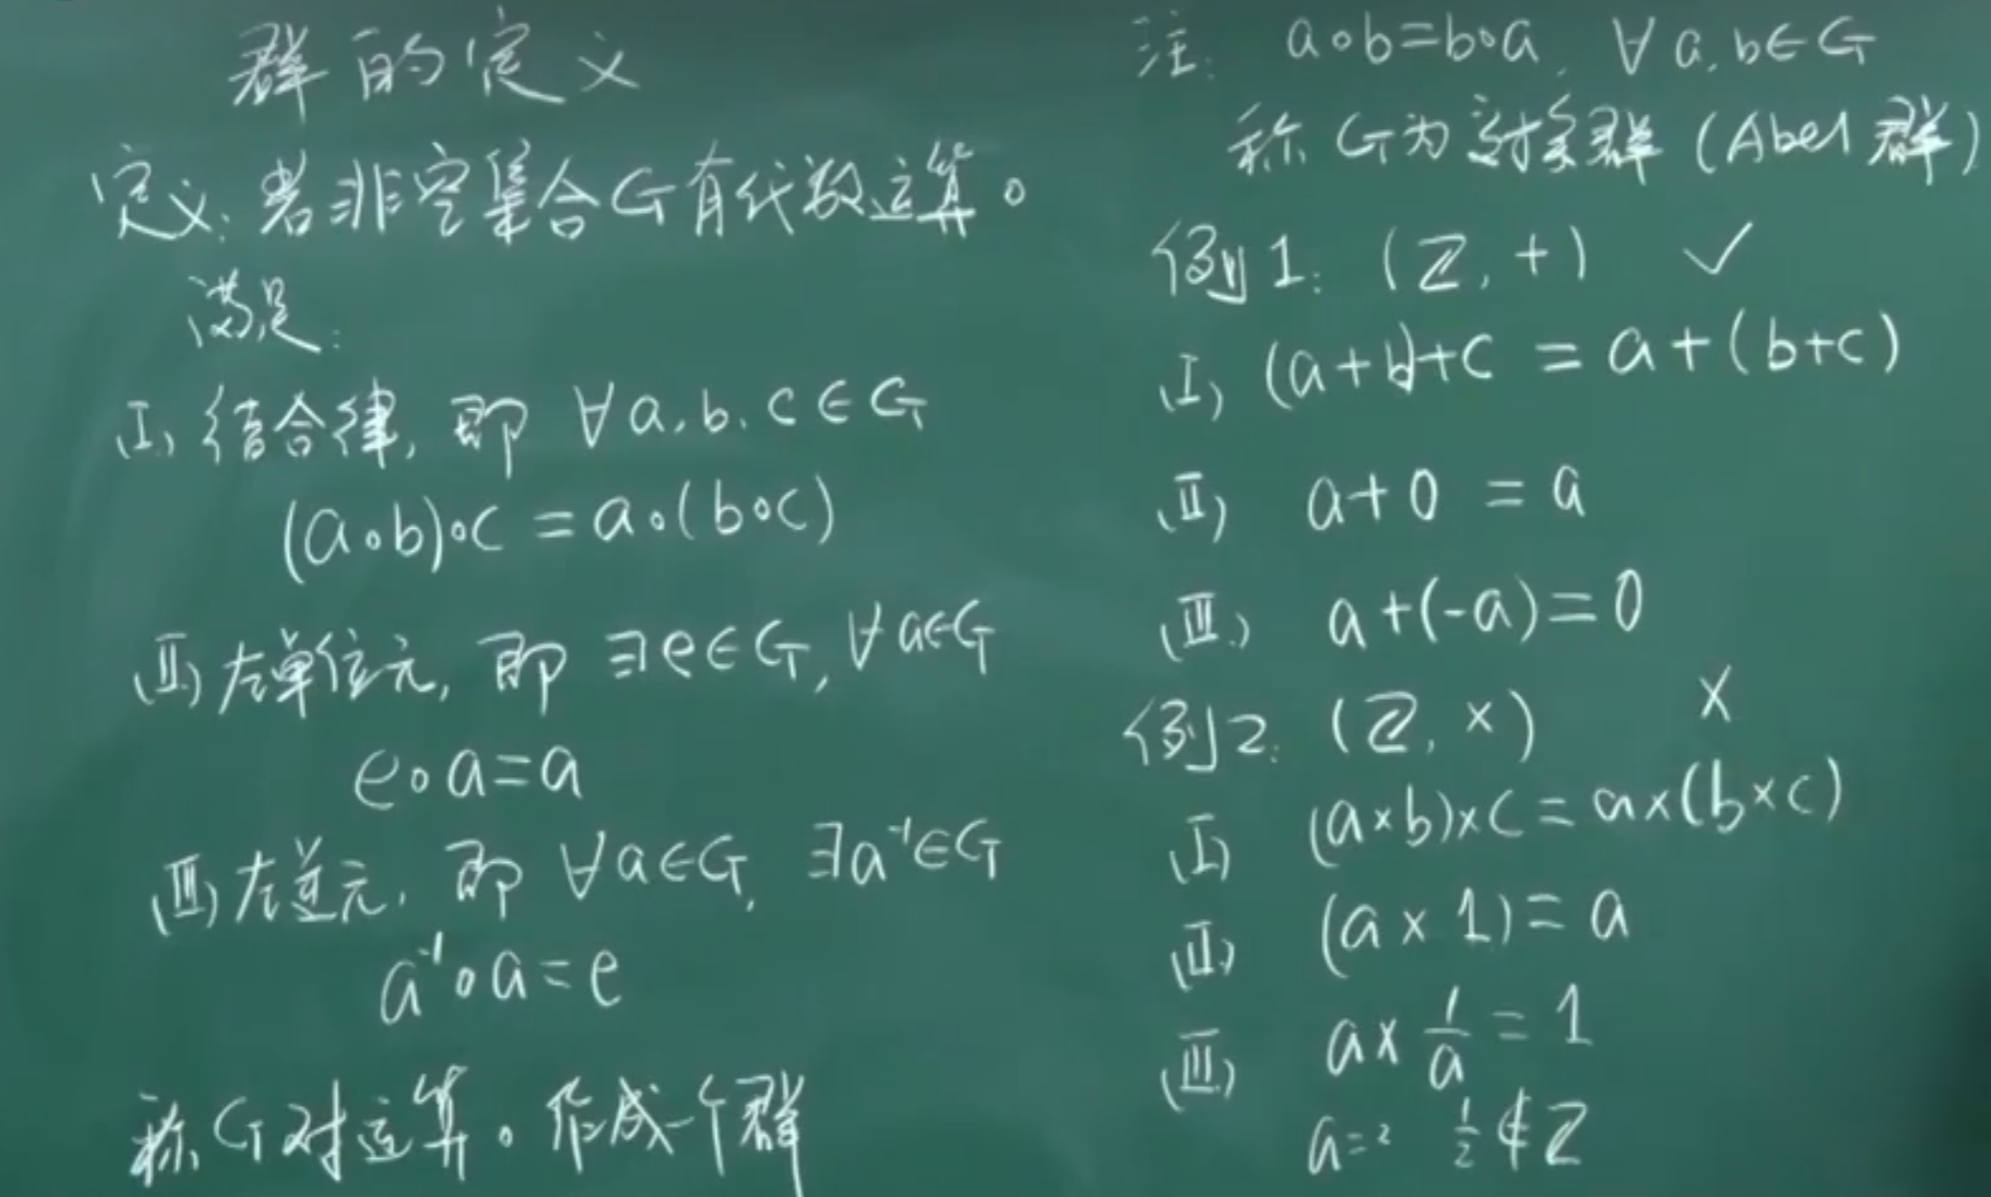 群的定义
定义:若非空集合G有代数运算∘
满足:
(I) 结合律, 即 ∀a,b,c∈G
(a∘b)∘c = a∘(b∘c)
(II) 左单位元, 即 ∃e∈G, ∀a∈G
e∘a=a
(III) 左逆元, 即 ∀a∈G, ∃a⁻¹∈G
a⁻¹∘a=e
称G对运算∘作成一个群
注: a∘b=b∘a, ∀a,b∈G
称G为对象群(Abel群)
例1: (Z, +) ✓
(I) (a+b)+c = a+(b+c)
(II) a+0 = a
(III) a+(-a)=0
例2: (Z, ×) ×
(I) (a×b)×c = a×(b×c)
(II) (a×1)=a
(III) a×1/a=1
a=2 1/2∉Z